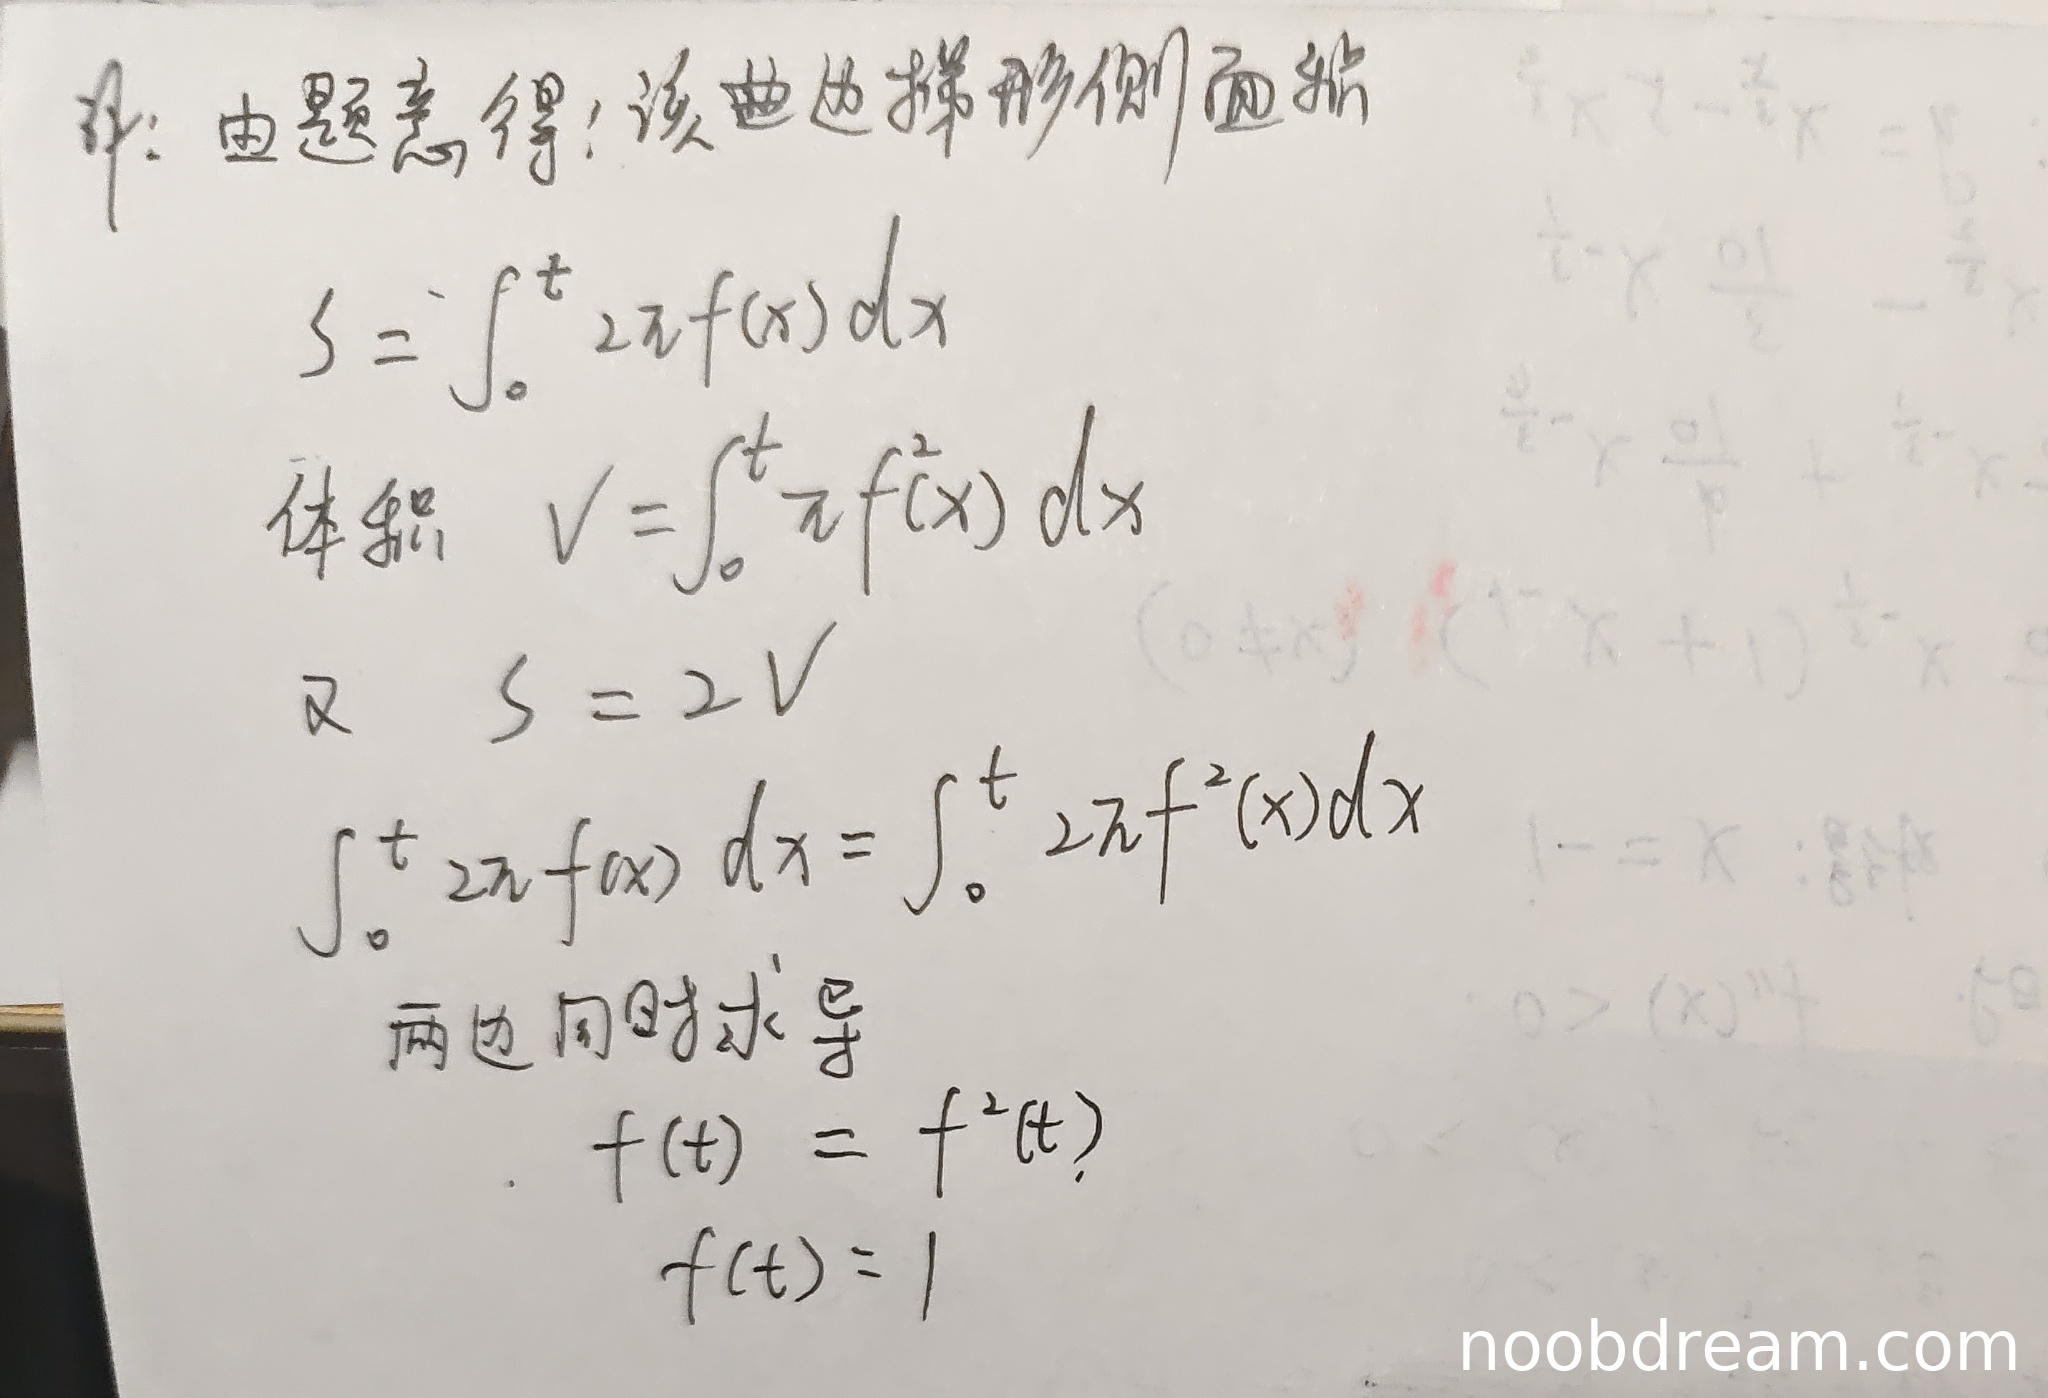 解: 由题意得: 该曲边梯形侧面积
S = ∫₀ᵗ 2πf(x)dx
体积 V = ∫₀ᵗ πf²(x) dx
又 S = 2V
∫₀ᵗ 2πf(x) dx = ∫₀ᵗ 2πf²(x)dx
两边同时求导
f(t) = f²(t)
f(t) = 1
noobdream.com